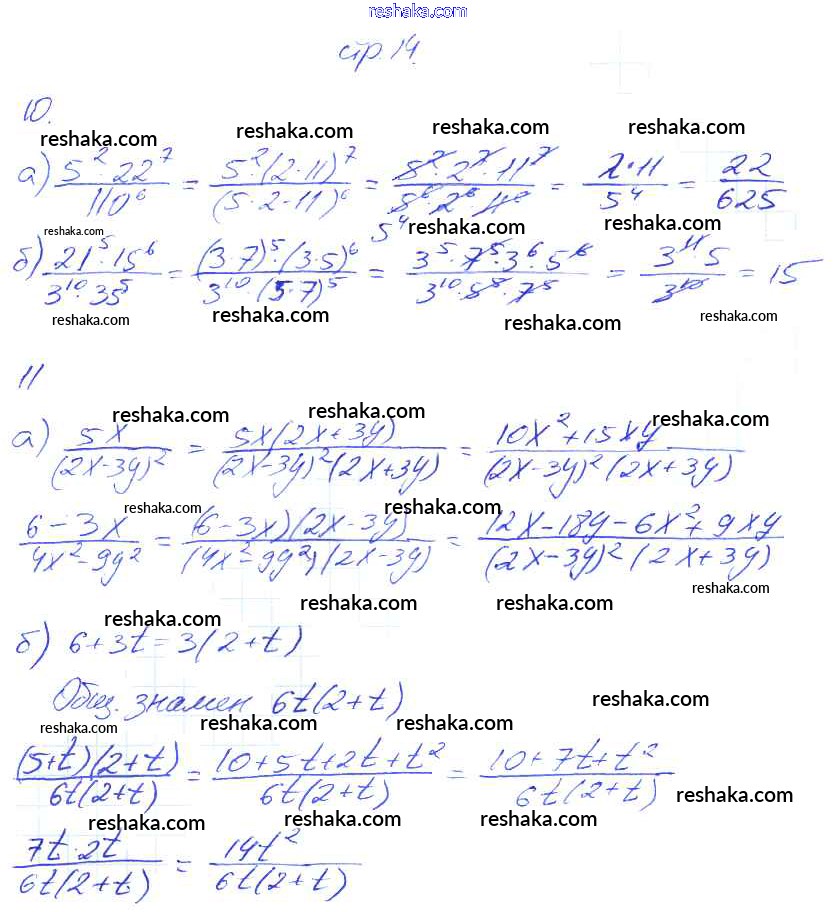 reshaka.com
стр. 14.
10.
reshaka.com reshaka.com reshaka.com reshaka.com
а) 5²·22⁷/110⁶ = 5²·(2·11)⁷/(5·2·11)⁶ = 5²·2⁷·11⁷/5⁶·2⁶·11⁶ = 2·11/5⁴ = 22/625
5⁴
reshaka.com reshaka.com reshaka.com
б) 21⁵·15⁶/3¹⁰·35⁵ = (3·7)⁵·(3·5)⁶/3¹⁰·(5·7)⁵ = 3⁵·7⁵·3⁶·5⁶/3¹⁰·5⁵·7⁵ = 3¹¹·5/3¹⁰ = 15
reshaka.com reshaka.com reshaka.com reshaka.com
11
reshaka.com reshaka.com reshaka.com
а) 5x/(2x-3y)² = 5x(2x+3y)/(2x-3y)²(2x+3y) = 10x²+15xy/(2x-3y)²(2x+3y)
reshaka.com reshaka.com
6-3x/4x²-9y² = (6-3x)(2x-3y)/(4x²-9y²)(2x-3y) = 12x-18y-6x²+9xy/(2x-3y)²(2x+3y)
reshaka.com
reshaka.com reshaka.com reshaka.com
б) 6+3t=3(2+t)
Общ. знамен 6t(2+t)
reshaka.com
reshaka.com reshaka.com reshaka.com
(5+t)(2+t)/6t(2+t) = 10+5t+2t+t²/6t(2+t) = 10+7t+t²/6t(2+t)
reshaka.com
reshaka.com reshaka.com reshaka.com
7t·2t/6t(2+t) = 14t²/6t(2+t)